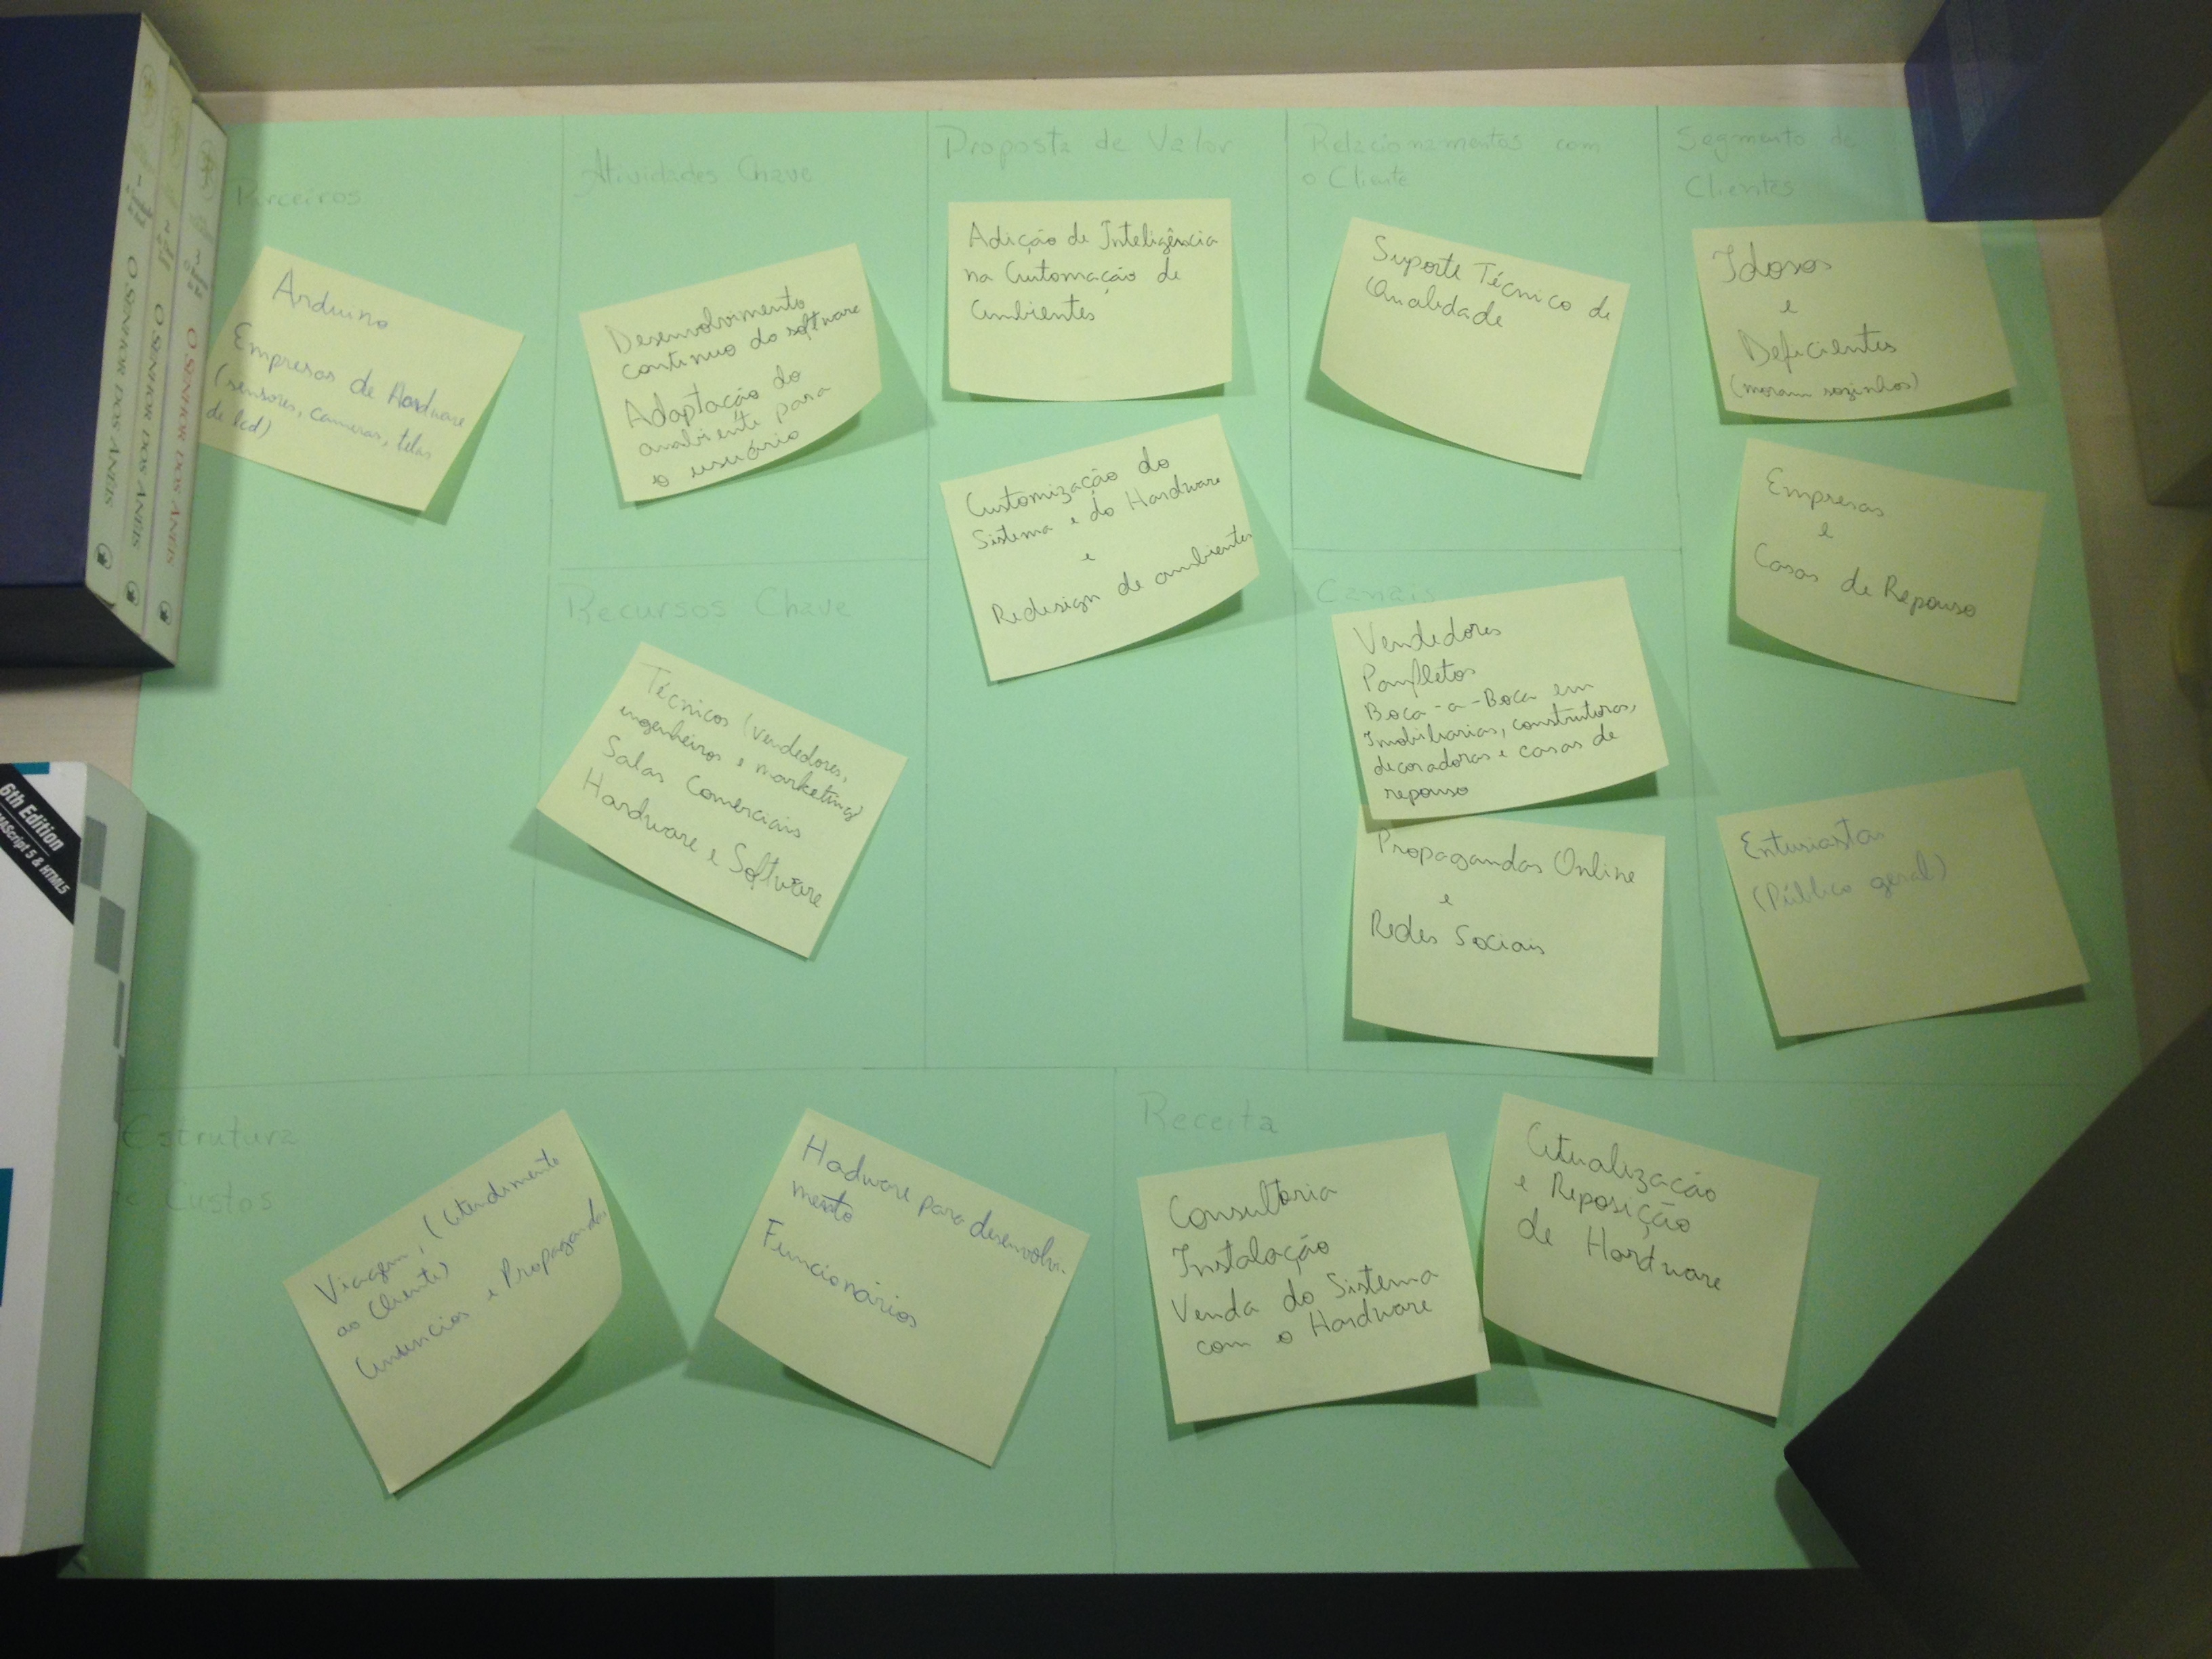 Parceiros
Arduino
Empresas de Hardware
(sensores, cameras, telas
de lcd)
Atividades Chave
Desenvolvimento
continuo do software
Adaptação do
ambiente para
o usuário
Recursos Chave
Técnicos (vendedores,
engenheiros e marketing)
Salas Comerciais
Hardware e Software
Proposta de Valor
Adição de Inteligência
na Automação de
Ambientes
Customização do
Sistema e do Hardware
e
Redesign de ambientes
Relacionamentos com
o Cliente
Suporte Técnico de
Qualidade
Canais
Vendedores
Panfletos
Boca-a-Boca em
Imobiliarias, construtoras,
decoradoras e casas de
repouso
Propagandas Online
e
Redes Sociais
Segmento de
Clientes
Idosos
e
Deficientes
(moram sozinhos)
Empresas
e
Casas de Repouso
Entusiastas
(Público geral)
Estrutura
Custos
Viagem, (Atendimento
ao Cliente)
Anúncios e Propagandas
Hadware para desenvolvi-
mento
Funcionários
Receita
Consultoria
Instalação
Venda do Sistema
com o Hardware
Atualização
e Reposição
de Hardware
O SENHOR DOS ANÉIS
O SENHOR DOS ANÉIS
O SENHOR DOS ANÉIS
6th Edition
Script 5 & HTML5